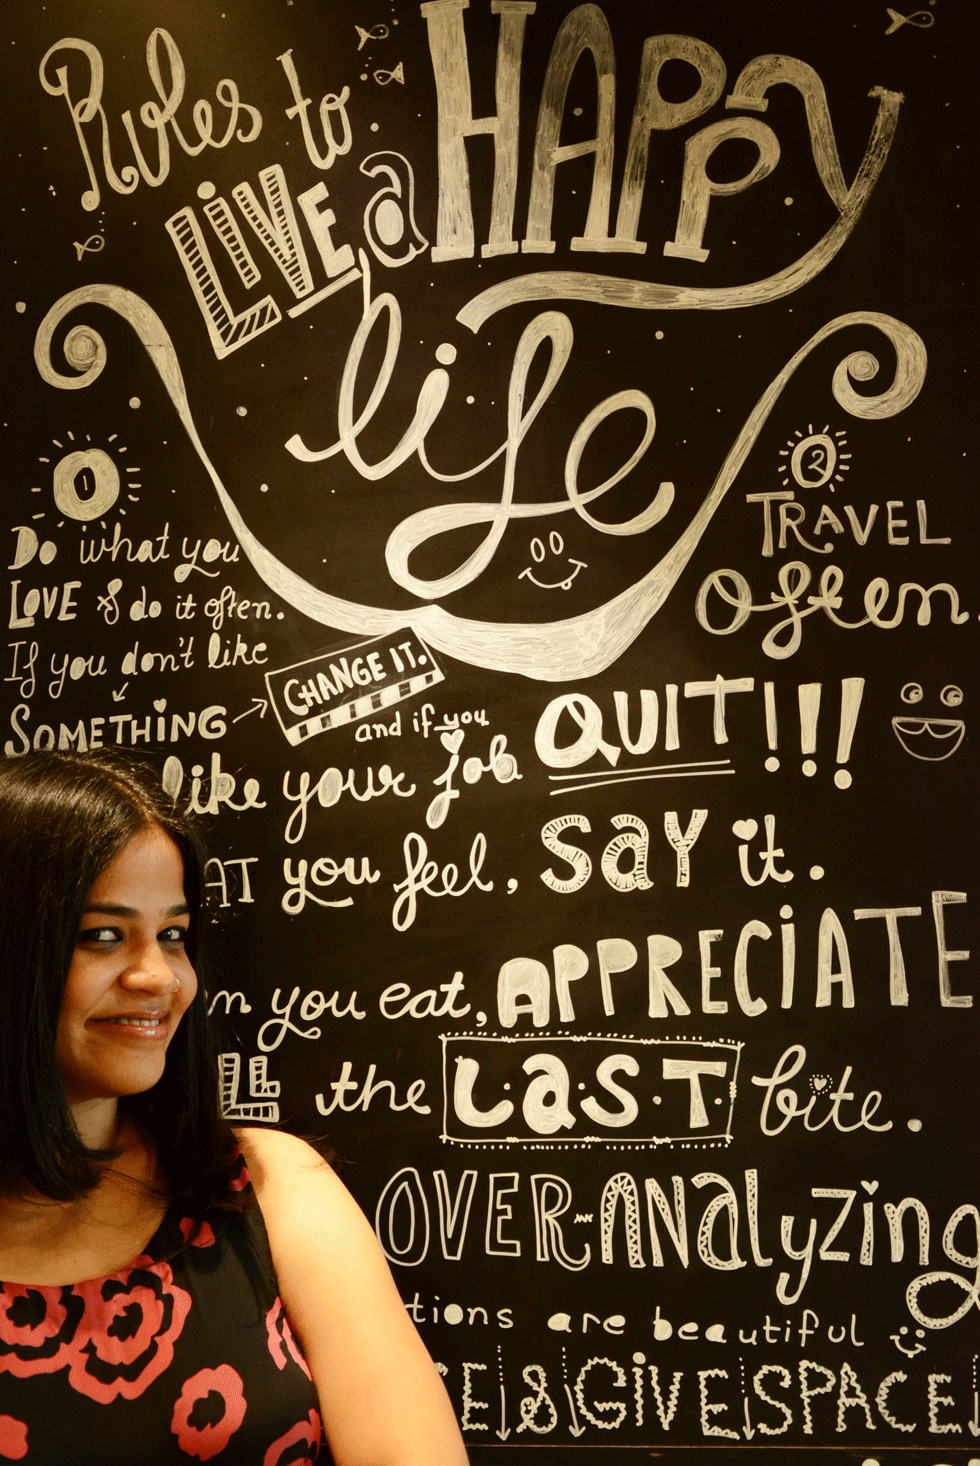 Rules to
LIVE a HAPPY
life
1
Do what you
LOVE & do it often.
If you don't like
SOMETHING
CHANGE IT.
2
TRAVEL
Often.
and if you
like your job QUIT!!!
AT you feel, SAY it.
n you eat, APPRECIATE
LL the LAST bite.
OVER-ANAlyzing
tions are beautiful
E & GIVE SPACE